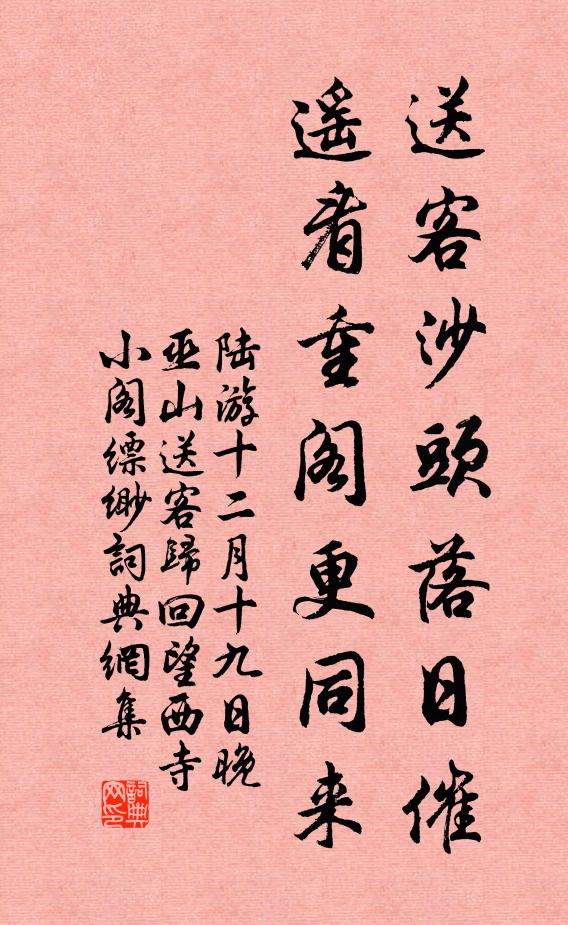 送客沙頭落日催
遥看重阁更同来
陆游十二月十九日晚
巫山送客歸回望西寺
小阁縹緲詞典網集
詞典网印